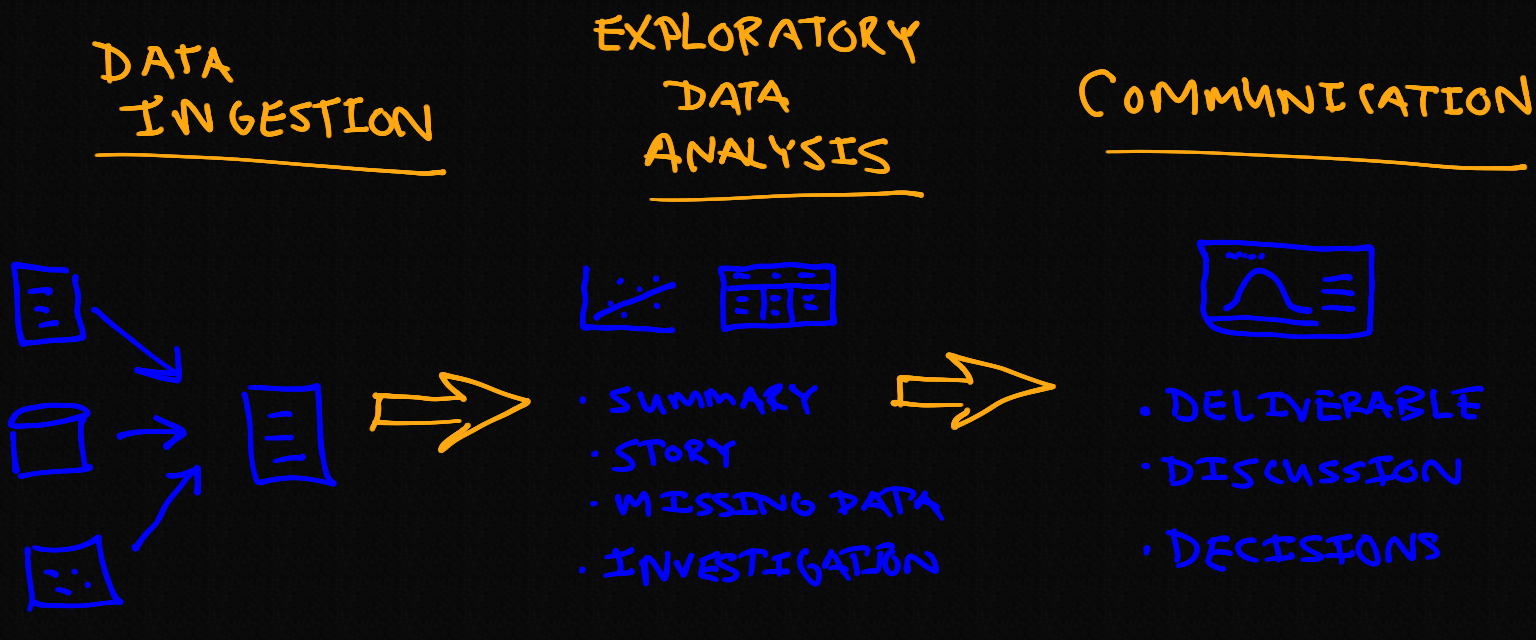 DATA
INGESTION
EXPLORATORY
DATA
ANALYSIS
· SUMMARY
· STORY
· MISSING DATA
· INVESTIGATION
COMMUNICATION
· DELIVERABLE
· DISCUSSION
· DECISIONS